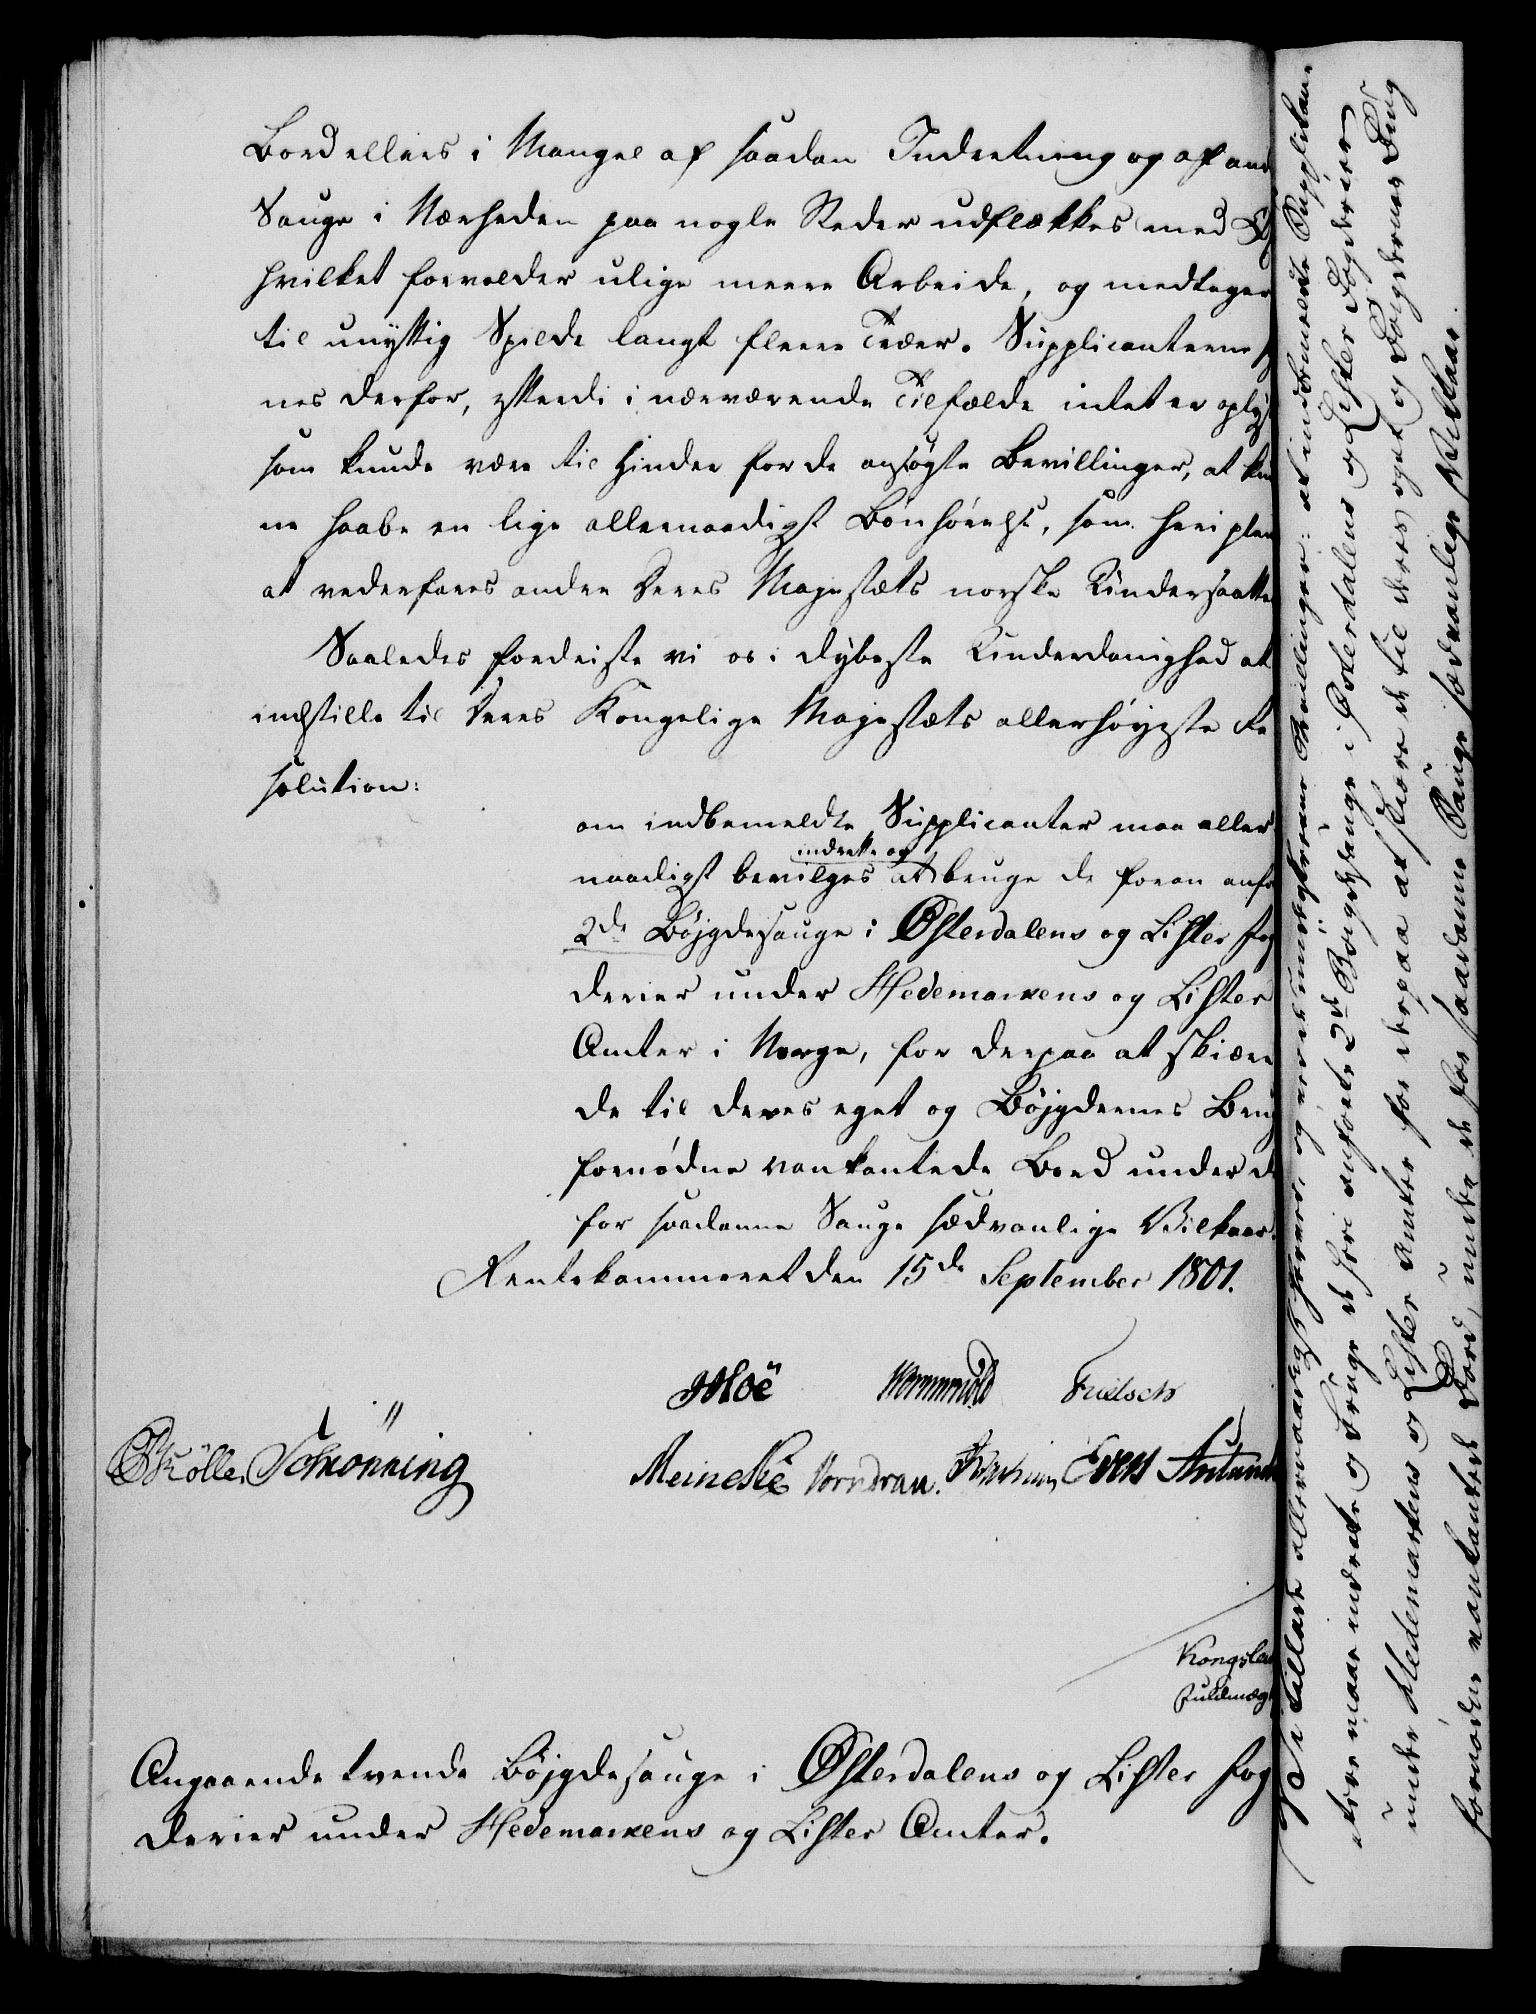 Bord ellers i Mangel af saadan Indretning og af andre
Sauge i Nærheden paa nogle Steder udflækkes med
hvilket forvolder ulige meere Arbeide, og medtager
til unyttig Spilde langt fleere Træer. Supplicanterne
nes derfor, efterdi i nærværende Tilfælde intet er oplyst
som kunde være til Hinder for de ansøgte Bevillinger, at kun
ne haabe en lige allernaadigst Bønhørelse, som heri pleier
at vederfares andre Deres Majestæts norske Undersaatter
Saaledes fordriste vi os i dybeste Underdanighed at
indstille til Deres Kongelige Majestæts allerhøyeste Re
solution:
om indbemeldte Supplicanter maa aller
indrette og
naadigst bevilges at bruge de foran anførte
2de Bøjgdesauge i Østerdalens og Lister Fog
derier under Hedemarkens og Lister
Amter i Norge, for derpaa at skiære
de til deres eget og Bøjgdernes Brug
fornødne vankantede Bord under de
for saadanne Sauge sædvanlige Vilkaar.
Rentekammeret den 15de September 1801.
Moë Wormskiold Fridsch
Møller Schiønning
Meincke Vorndran. Evers
Kongslew
Fuldmægt
Angaaende tvende Bøjgdesauge i Østerdalens og Lister Fog
derier under Hedemarkens og Lister Amter.
Vi tillade allernaadigst herved, og ville navnligen Bevillinger: at indbemeldte Supplikan
tere maae indrette og bruge de heri anførte 2de Bøigdesauge i Østerdalens og Lister Fogderier
under Hedemarkens og Lister Amter for derpaa at skiære de til deres eget og Bøigdernes Brug
fornødne vankantede Bord, under de for saadanne Sauge sædvanlige Vilkaar.